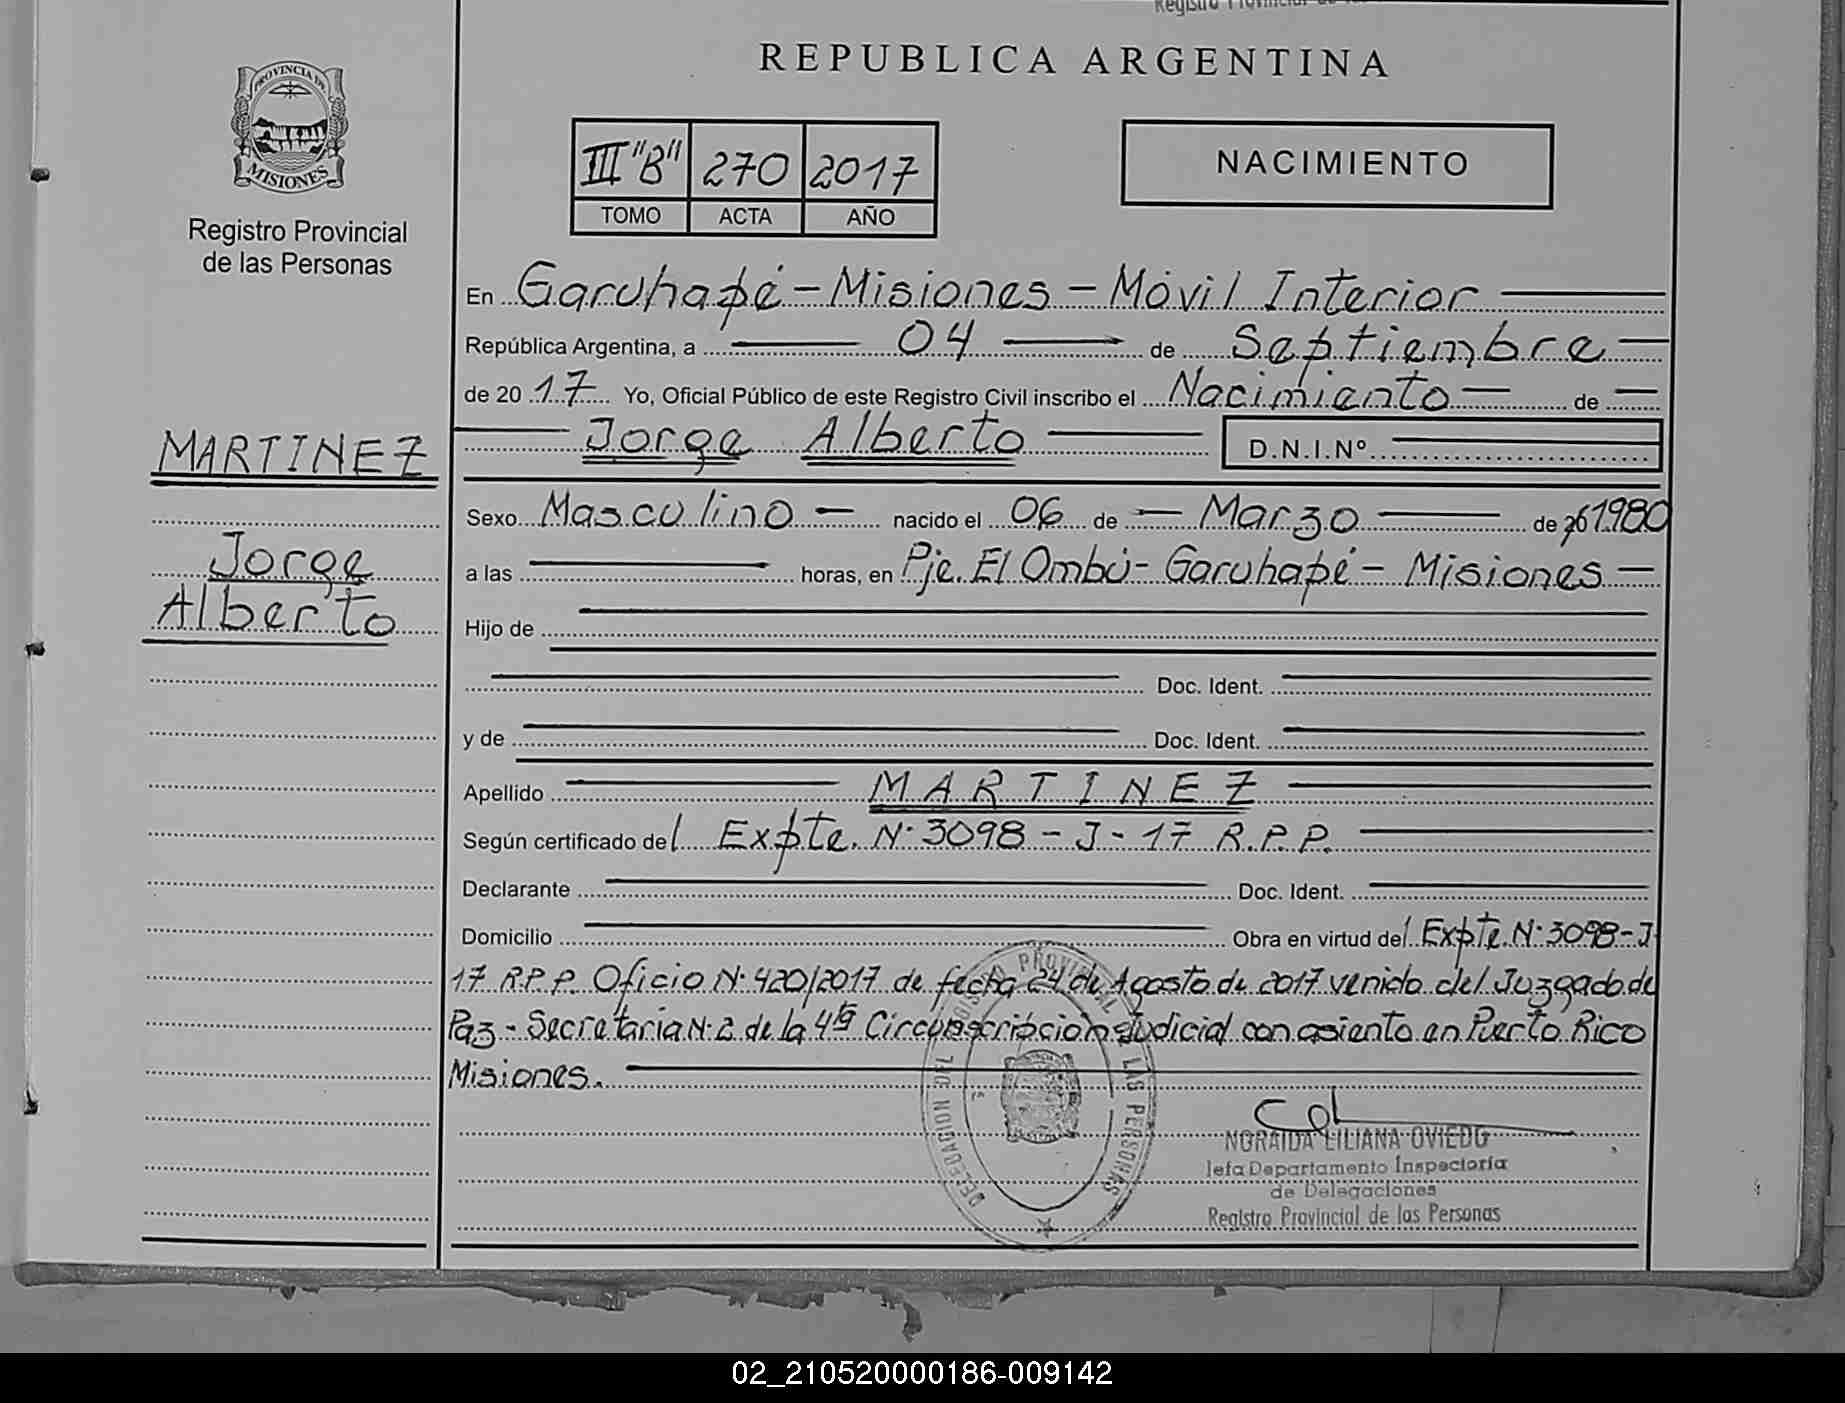 Registro Provincial de las
REPUBLICA ARGENTINA
PROVINCIA DE
MISIONES
Registro Provincial
de las Personas
III "B" 270 2017
TOMO ACTA AÑO
NACIMIENTO
En Garuhapé - Misiones - Móvil Interior
República Argentina, a 04 de Septiembre
de 2017 Yo, Oficial Público de este Registro Civil inscribo el Nacimiento de
Jorge Alberto D.N.I.Nº
MARTINEZ
Jorge
Alberto
Sexo Masculino nacido el 06 de Marzo de 1980
a las horas, en Pje. El Ombú - Garuhapé - Misiones
Hijo de
Doc. Ident.
y de Doc. Ident.
Apellido MARTINEZ
Según certificado del Expte. N· 3098 - J - 17 R.P.P.
Declarante Doc. Ident.
Domicilio Obra en virtud del Expte. N· 3098 - J-
17 R.P.P. Oficio N· 420/2017 de fecha 24 de Agosto de 2017 venido del Juzgado de
Paz - Secretaria N· 2 de la 4ta Circunscripcion Judicial con asiento en Puerto Rico
Misiones.
DELEGACION DEL REGISTRO PROVINCIAL DE LAS PERSONAS
NORAIDA LILIANA OVIEDO
Jefa Departamento Inspectoría
de Delegaciones
Registro Provincial de las Personas
02_210520000186-009142